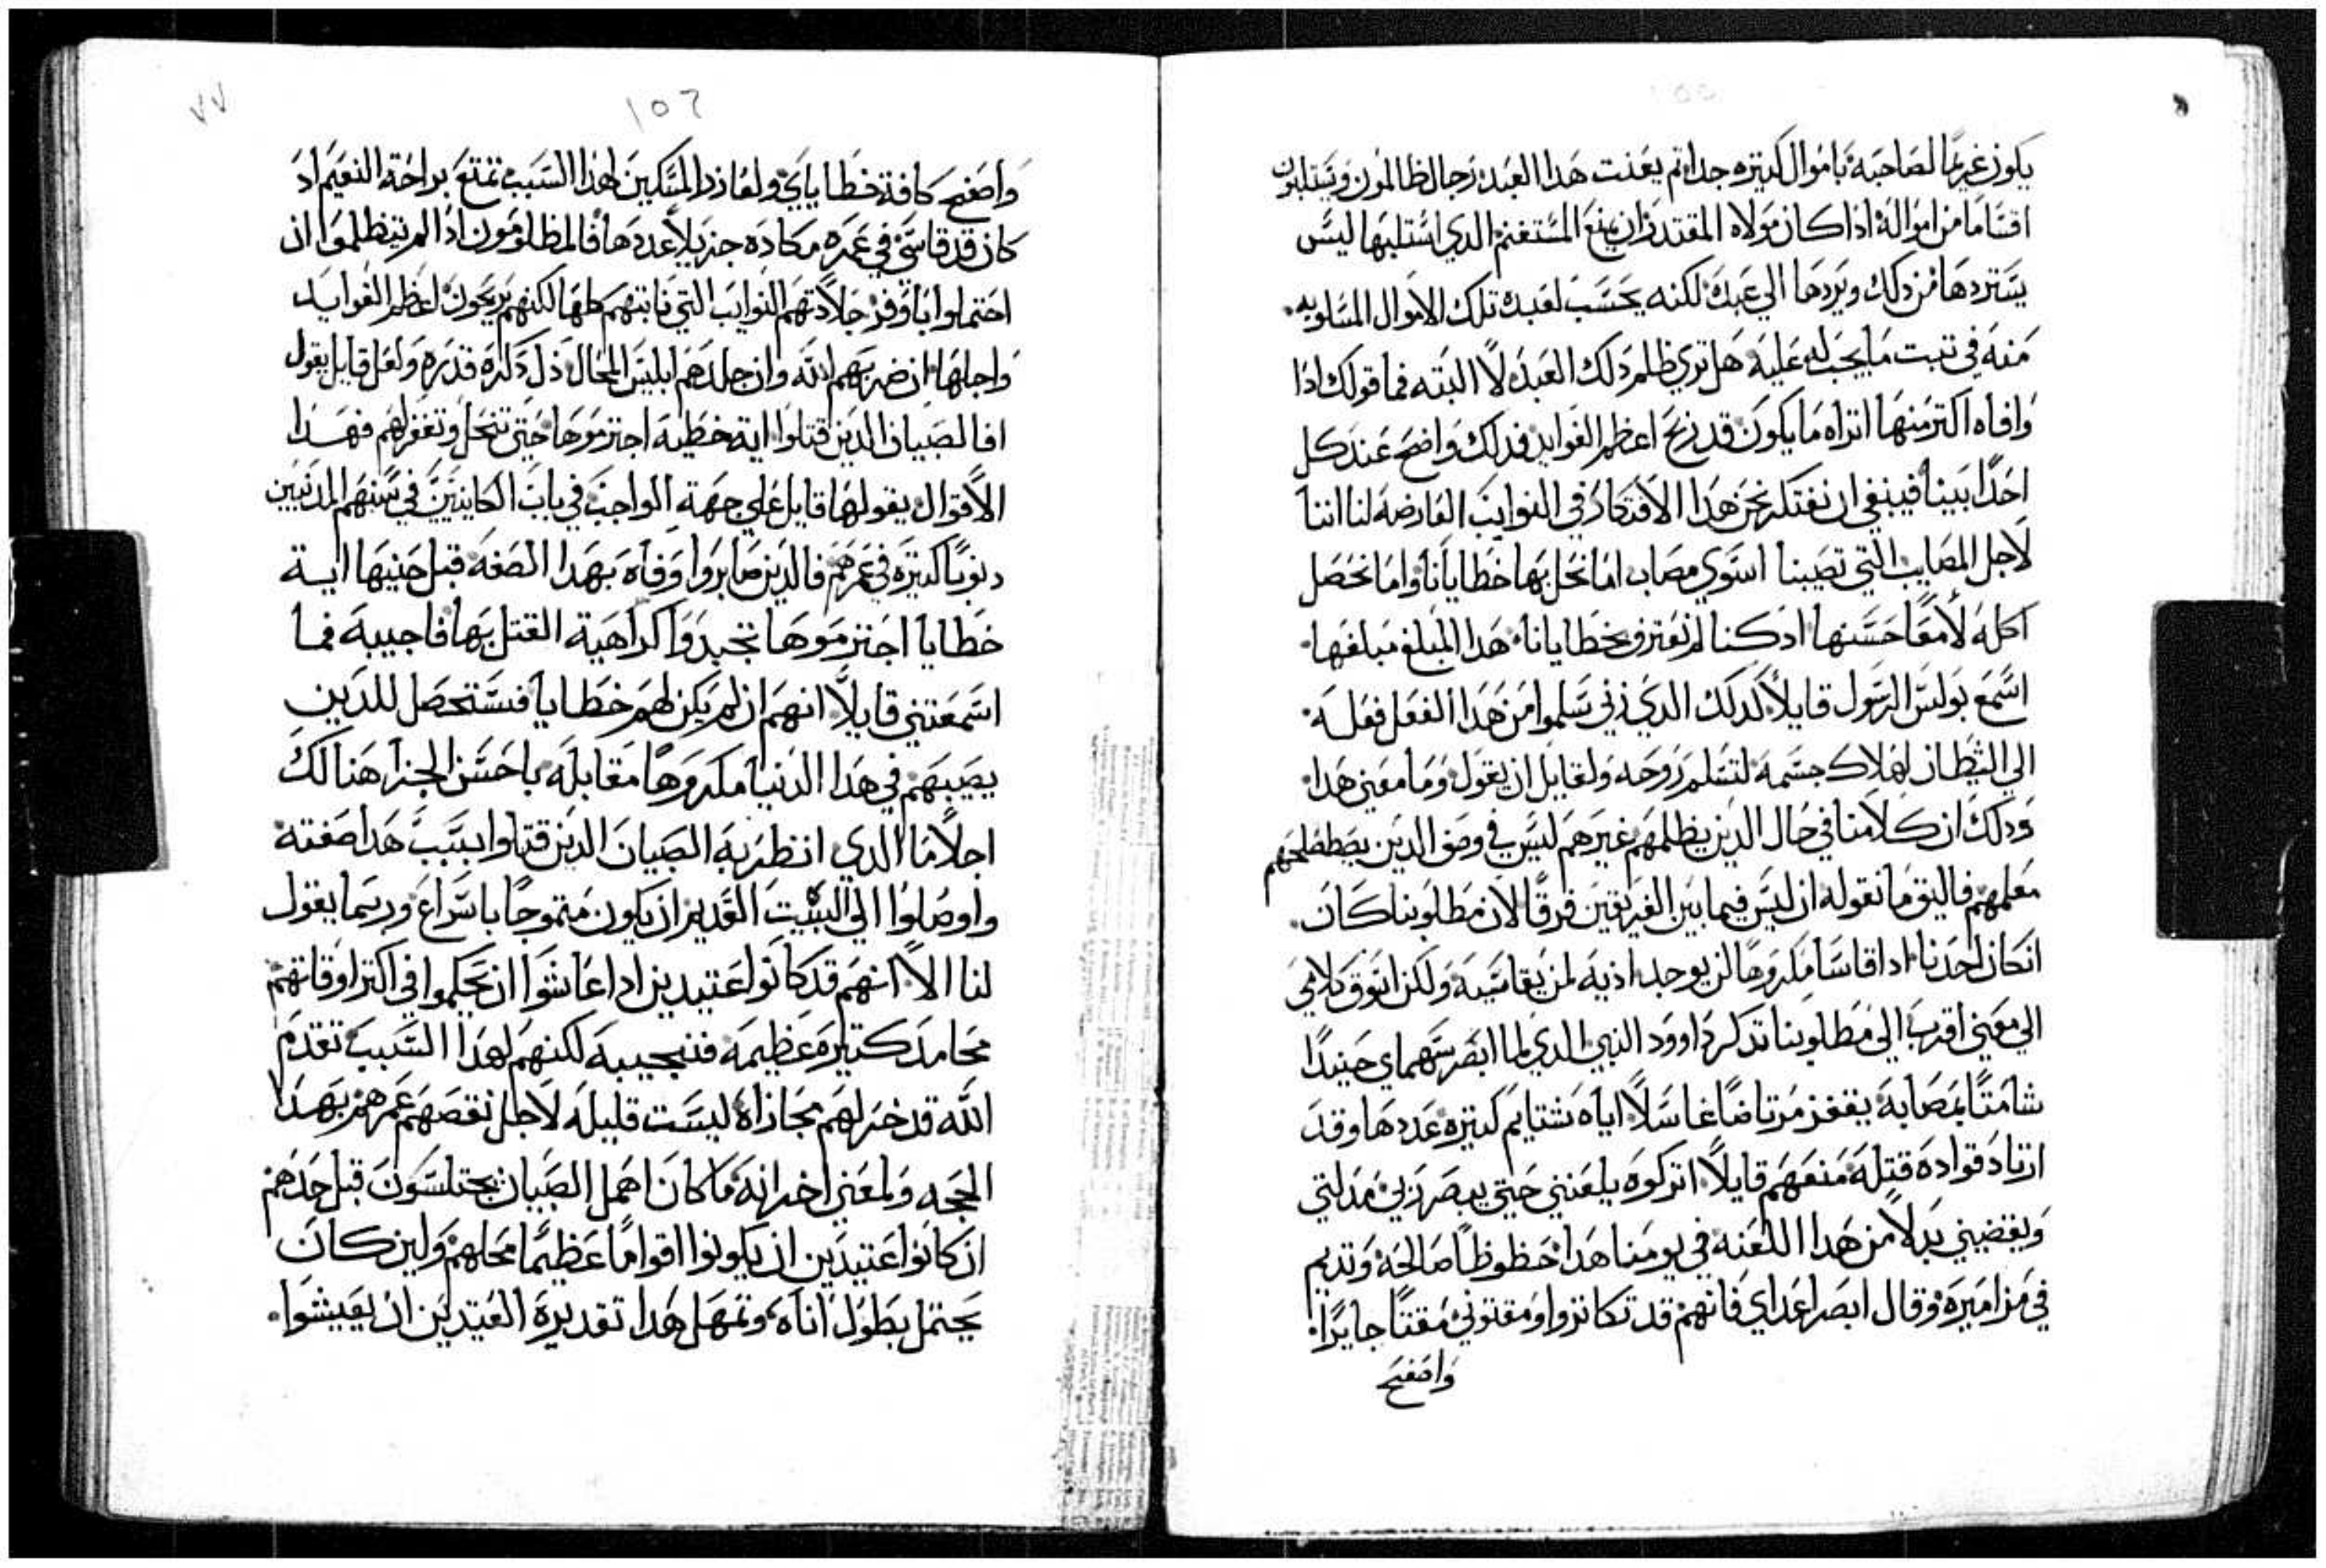 يكون غريمًا لصاحبه باموال كتيره جدا تم يعنت هدا العبد رجال ظالمون ويستلبون
اقسامًا من امواله اذا كان مولاه المقتدر ان يمنع المستغنم الدي استلبها ليس
يستردها من دلك ويردها الي عبده لكنه يحسب لعبده تلك الاموال المسلوبه
منه في تتبت ما يجب له عليه هل تري ظلم دلك العبد لا البته فما قولك ادا
وافاه اكتر منها اتراه ما يكون قد ربح اعظم الفوايد فدلك واضح عند كل
احدًا بينا فينبغي ان نفتكر نحن هدا الافتكار في النوايب العارضه لنا اننا
لاجل المصايب التي تصيبنا اسوي مصاب اما نحل بها خطايانا واما نحصل
اكلة لامعًا حسنها ادكنا لم نعترف بخطايانا هدا المبلغ مبلغها
اسمع بولس الرسول قايلًا لدلك الدي زني سلموا من هدا الفعل فعله
الي الشيطان لهلاك جسمه لتسلم روحه ولقايل ان يقول وما معني هدا
ودلك ان كلامنا في حال الدين يظلمهم غيرهم ليس في وصف الدين يصطلحهم
معلمهم فاليق ما نقوله ان ليس فيما بين الفريقين فرقًا لان مطلوبنا كان
ان كان احدنا ادا قاسا مكروهًا لن يوجد اذيه لمن يقاسيه ولكن اسوق كلامي
الي معني اقرب الي مطلوبنا تدكر داوود النبي الدي لما ابصر سهماي حينيدًا
شامتًا بمصابه يقفز مرتاضًا غاسلًا اياه بشتايم كتيره عددها وقد
ارتاد قواده قتله منعهم قايلًا اتركوه يلعنني حتي يبصر ربي مدلتي
ويقضيني بدلًا من هدا اللعنه في يومنا هدا حظوظًا صالحه وتديم
في مزاميره وقال ابصر اعداي فانهم قد تكاتروا ومقتوني مقتًا جايرًا
واصفح
١٥٦
٧٧
واصفح كافة خطاياي ولعازر المسكين لهدا السبب تمتع براحة النعيم اد
كان قد قاسي في عمره مكاده جزيلًا عددها فالمظلومون ادا لم يتظلموا ان
احتملوا باوفر جلادتهم النوايب التي نابتهم كلها لكنهم يربحون اعظم الفوايد
واجلها ان ضربهم الله وان جلدهم ابليس المحال ذل دكره قدره ولعل قايل يقول
افالصبيان الدين قتلوا اية خطيه اجترموها حتي تنحل وتغفر لهم فهدا
الاقوال يقولها قايل علي جهة الواجب في باب الكاينين في سنهم المدنبين
دنوبًا كتيره في عمرهم فالدين صابروا وفاه بهدا الصفه قبل حينها اية
خطايا اجترموها تجيد وا كراهية القتل بها فاجيبه فما
اسمعتني قايلًا انهم ان لم يكن لهم خطايا فستحصل للدين
يصيبهم في هدا الدنيا مكروهًا مقابله باحسن الجزا هنالك
اجلا ما الدي انظر به الصبيان الدين قتلوا بسبب هدا صفته
واوصلوا الي البيت القدير ان يكون متموجًا باسراع وربما يقول
لنا الا انهم قد كانوا عتيدين ادا عاشوا ان يحكموا في اكتر اوقاتهم
محامد كتيره عظيمه فنجيبه لكنهم لهدا السبب تقدم
الله قد خر لهم مجازاه ليست قليله لاجل نقصهم عمرهم بهدا
الحجه ولمعني اخر انه ما كان اهمل الصبيان يختلسون قبل حدهم
ان كانوا عتيدين ان يكونوا اقوامًا عظيمًا محلهم ولين كان
يحتمل بطول اناه وتمهل هدا تقديره العتيدين ان يعيشوا